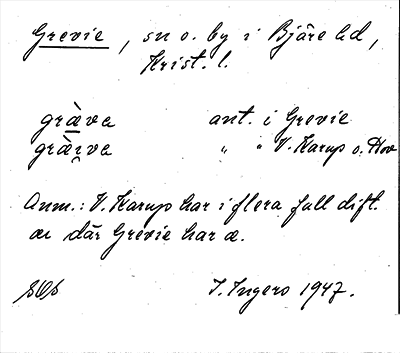 Grevie, sn o. by i Bjäre hd,
Krist. l.
gràva ant. i Grevie
gràıva " " V. Karup o. Hov
Anm.: V. Karup har i flera fall dift.
där Grevie har
I. Ingers 1947.